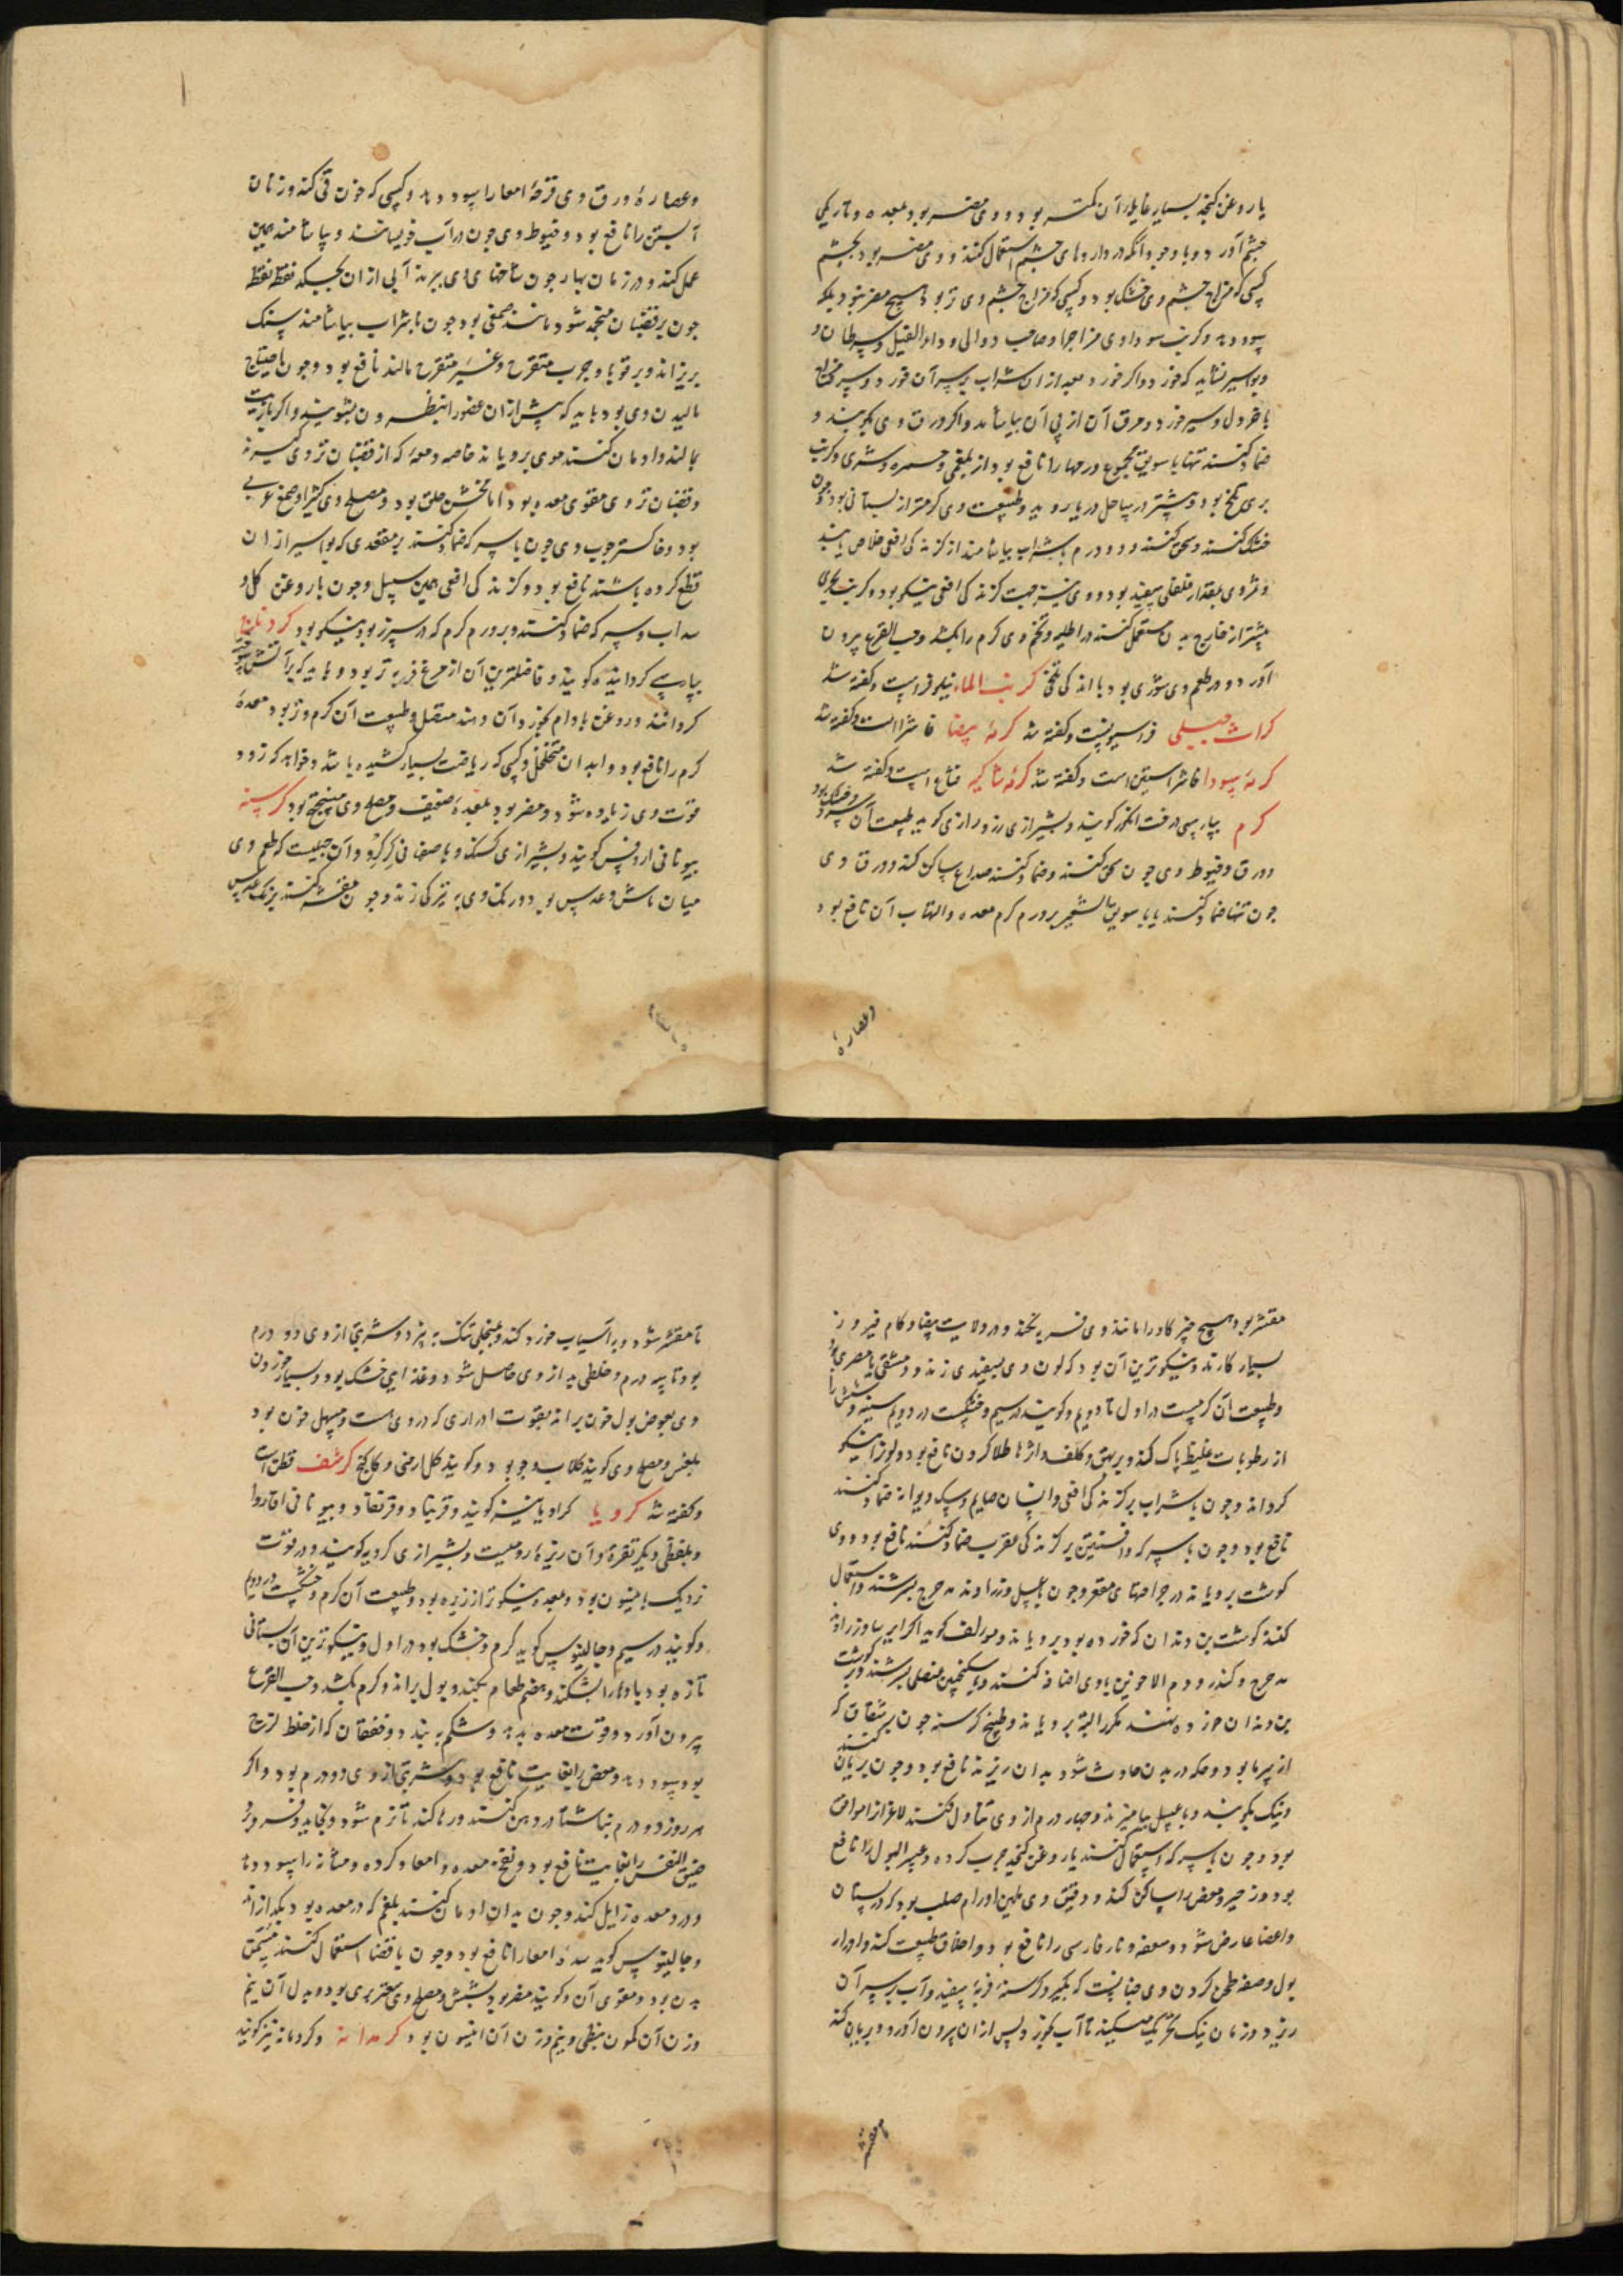 یا روغن کنجد بسیار غایله آن کمتر بود و وی مضر بود بمعده و تاریکی
چشم آورد و با وجود آنکه در داروهای چشم استعمال کنند و وی مضر بود بچشم
کسی که مزاج چشم وی خشک بود و کسی که مزاج چشم وی تر بود هیچ مضر نبود بلکه
سود دهد و کرنب سوداوی مزاجرا و صاحب دوالی و داء الفیل و سرطان و
و بواسیر نشاید که خورد و اگر خورد بعد از ان شراب بر سر آن خورد و سرکه
با خردل و سیر خورد و مرق آن از پی آن بیاشامد و اگر ورق وی بکوبند و
ضماد کنند تنها یا سویق مجموع ورمها را نافع بود از بلغمی و حمره و شری و کرنب
بری تلخ بود و بیشتر در ساحل دریا روید و طبیعت وی گرمتر از بستانی بود و چون
خشک کنند و سحق کنند و دو درم با شراب بیاشامند از گزندگی افعی خلاص یابند
و بمقدار فلفلی سفید بود و وی نیز جهت گزندگی افعی نیکو بود و کرنب بحری
بیشتر از خارج بدن مستعمل کنند در اطلیه و تخم وی کرم را بکشد و حب القرع بیرون
آورد و در طعم وی شوری بود با اندکی تلخی کرنب الماء نیلوفرست و گفته شد
کراث جبلی فراسیونست و گفته شد کرمه بیضا فاشراست و گفته شد
کرمه سودا فاشرستین است و گفته شد کرمه شاکه فشاغ است و گفته شد
کرم بپارسی درخت انگور گویند و بشیرازی رز و رازی گویند طبیعت آن سرد و خشک بود
ورق و خیوط وی چون سحق کنند و ضماد کنند صداع ساکن کند و ورق وی
چون تنها ضماد کنند یا با سویق الشعیر بر ورم گرم معده و التهاب آن نافع بود
وعصاره
وعصاره ورق وی قرحه امعا را سود دهد و کسی که خون قی کند و زنان
آبستن را نافع بود و خیوط وی چون در آب خویسانند و بیاشامند همین
عمل کند و در زمان بهار چون شاخهای وی ببرند آبی از ان بچکد نقطه نقطه
چون بر قضبان منجمد شود مانند صمغی بود چون با شراب بیاشامند سنگ
بریزاند و بر قوبا و جرب متقرح و غیر متقرح مالند نافع بود و چون احتیاج
مالیدن وی بود باید که پیش از ان عضو را بنطرون بشویند و اگر با زیت
بمالند و ادمان کنند موی برویاند خاصه دمعه که از قضبان تر وی گیرند
و قضبان تر وی مقوی معده بود اما مخشن حلق بود و مصلح وی کثیرا و صمغ عربی
بود و خاکستر چوب وی چون با سرکه ضماد کنند بر مقعدی که بواسیر از ان
قطع کرده باشند نافع بود و گزندگی افعی همین سبیل و چون با روغن گل و
سداب و سرکه ضماد کنند و بر ورم گرم که در سپرز بود نیکو بود
بپارسی گردانیده گویند و فاضلترین آن از مرغ فربه تر بود و باید که بر آتش
گردانند و روغن بادام بخورد آن دهند متصل و طبیعت آن گرم و تر بود معده
گرم را نافع بود و ابدان متخلخل و کسی که ریاضت بسیار کشیده باشد و خواهد که زود
قوت وی زیاده شود و مضر بود بمعده ضعیف و مصلح وی سنجد بود کرسنه
بیونانی اروفس گویند و بشیرازی کسنک و باصفهانی کرکرو و آن حبیست که طعم وی
میان ماش و عدس بود و رنگ وی به تیرگی زند و چون مقشر کنند برنگ عدس
مقشر بود هیچ چیز گاو را مانند وی فربه نکند و در ولایت بیضا و کام فیروز
بسیار کارند و نیکوترین آن بود که لون وی بسفیدی زند و دمشقی یا مصری بود
و طبیعت آن گرمست در اول تا دویم و گویند در سیم و خشکست در دویم سینه و شش را
از رطوبات غلیظ پاک کند و بر بهق و کلف و اثرها طلا کردن نافع بود و لون را نیکو
گرداند و چون با شراب بر گزندگی افعی و انسان صایم و سگ دیوانه ضماد کنند
نافع بود و چون با سرکه و افسنتین بر گزندگی عقرب ضماد کنند نافع بود و وی
گوشت برویاند در جراحتهای مقعر و چون با عسل و زراوند مدحرج بسرشند و استعمال
کنند گوشت بن دندان که خورده بود برویاند و مؤلف گوید اگر ایرسا و زراوند
مدحرج و کندر و دم الاخوین با وی اضافه کنند و بسکنجبین عنصلی بسرشند و بر گوشت
بن دندان خورده نهند مکرر البته برویاند و طبیخ کرسنه چون بر شقاق که
از سرما بود و حکه در بدن حادث شود بدان ریزند نافع بود و چون بریان کنند
و نیک بکوبند و با عسل بیامیزند و چهار درم از وی تناول کنند لاغر را موافق
بود و چون با سرکه استعمال کنند یا روغن کنجد چرب کرده و عسر البول را نافع
بود و زحیر و مغص را ساکن کند و دقیق وی ملین اورام صلب بود که در پستان
و اعضا عارض شود و سعفه و نار فارسی را نافع بود و اطلاق طبیعت کند و ادرار
بول و صفت طحن کردن وی چنانست که بگیرد کرسنه فربه سفید و آب بر سر آن
ریزد و زمان نیک تحریک میکند تا آب بخورد و پس از ان بیرون آورد و بریان کند
تا مقشر
تا مقشر شود و به آسیاب خورد کند و بمنخلی تنک ببیزد و شربتی از وی دو درم
بود تا سه درم و خلطی بد از وی حاصل شود و غذای خشک بود و بسیار خوردن
وی بعوض بول خون براند بقوت ادراری که در وی هست و مسهل خون بود
بمغص و مصلح وی گویند گلاب و جو بود و گویند گل ارمنی و کاکنج کرسف قطن است
و گفته شد کرویا کراویا نیز گویند و قرنباد و قرنقاد و بیونانی اقاروا
و بلفظی دیگر تقرده و آن زیره رومیست و بشیرازی کرویه گویند و در قوت
نزدیک بانیسون بود و بمعده نیکوتر از زیره بود و طبیعت آن گرم و خشکست در دویم
و گویند در سیم و جالینوس گوید گرم و خشک بود در اول و نیکوترین آن بستانی
تازه بود بادها را بشکند و هضم طعام بکند و بول براند و کرم بکشد و حب القرع
بیرون آورد و قوت معده بدهد و شکم ببندد و خفقان که از خلط لزج
بود سود دهد و مغص را بغایت نافع بود و شربتی از وی دو درم بود و اگر
هر روز دو درم بناشتا در دهن کنند و رها کند تا نرم شود و بخاید و فرو برد
ضیق النفس را بغایت نافع بود و نفخ معده و امعا و گرده و مثانه را سود دهد
و درد معده زایل کند و چون بدان ادمان کنند بلغم که در معده بود بگدازاند
و جالینوس گوید سده امعا را نافع بود و چون با غذا استعمال کنند مسخن
بدن بود و مقوی آن و گویند مضر بود بشش و مصلح وی صعتر بری بود و بدل آن نیم
وزن آن کمون نبطی و نیم وزن آن انیسون بود کرمدانه و کردمانه نیز گویند